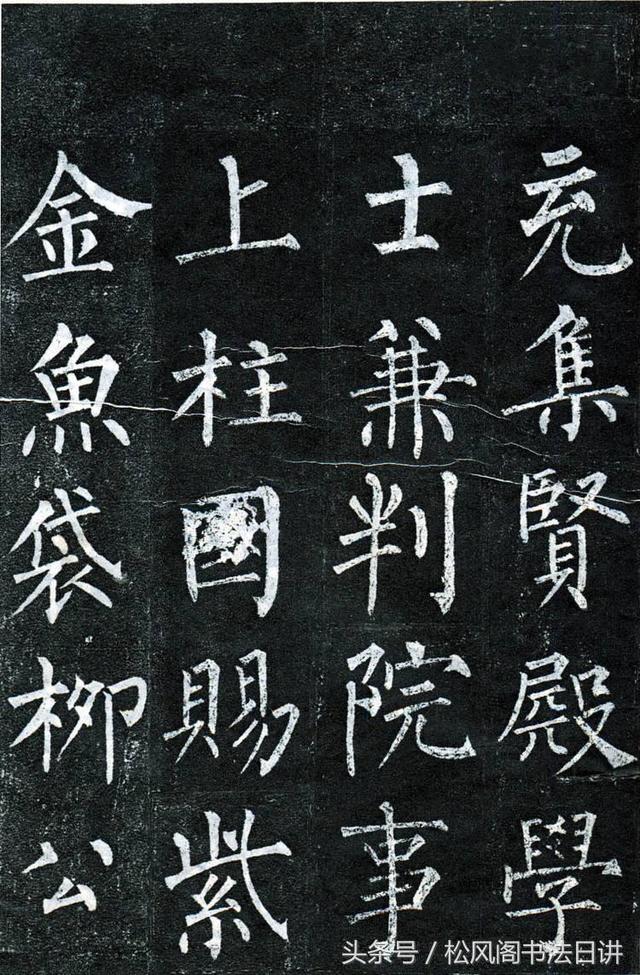 充集賢殿學
士兼判院事
上柱國賜紫
金魚袋柳公
头条号/松风阁书法日讲